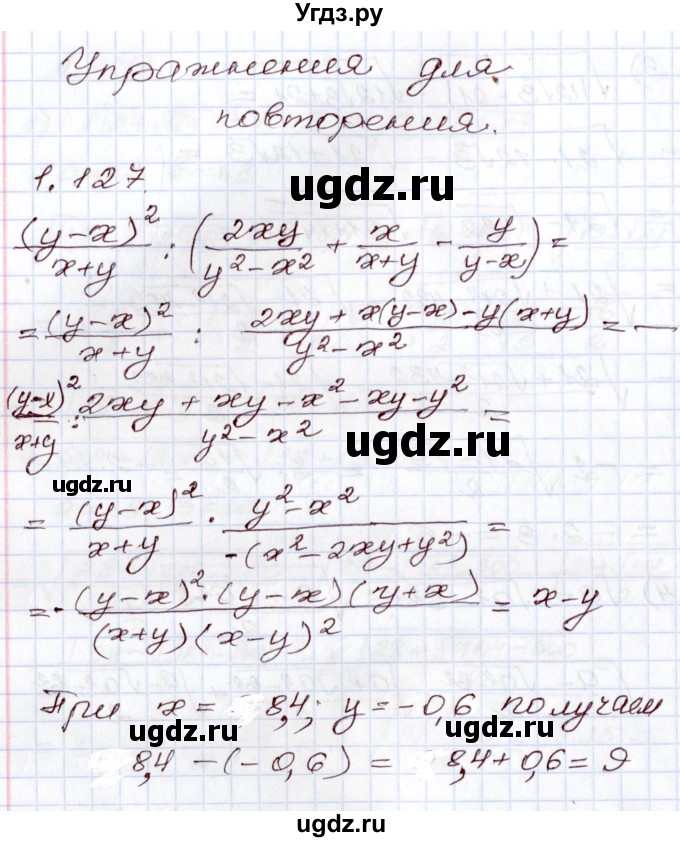 Угдз.ру
Упражнения для
повторения.
1.127.
ugdz.ru
(y-x)²/(x+y) : (2xy/(y²-x²) + x/(x+y) - y/(y-x)) =
= (y-x)²/(x+y) : (2xy + x(y-x) - y(x+y))/(y²-x²) = —
(y-x)²/(x+y) : (2xy + xy - x² - xy - y²)/(y²-x²) =
ugdz.ru
ugdz.ru
= (y-x)²/(x+y) · (y²-x²)/(-(x²-2xy+y²)) =
= -((y-x)²·(y-x)(y+x))/((x+y)(x-y)²) = x-y
При x = 8,4; y = -0,6 получаем
ugdz.ru
ugdz.ru
8,4 - (-0,6) = 8,4 + 0,6 = 9
ugdz.ru